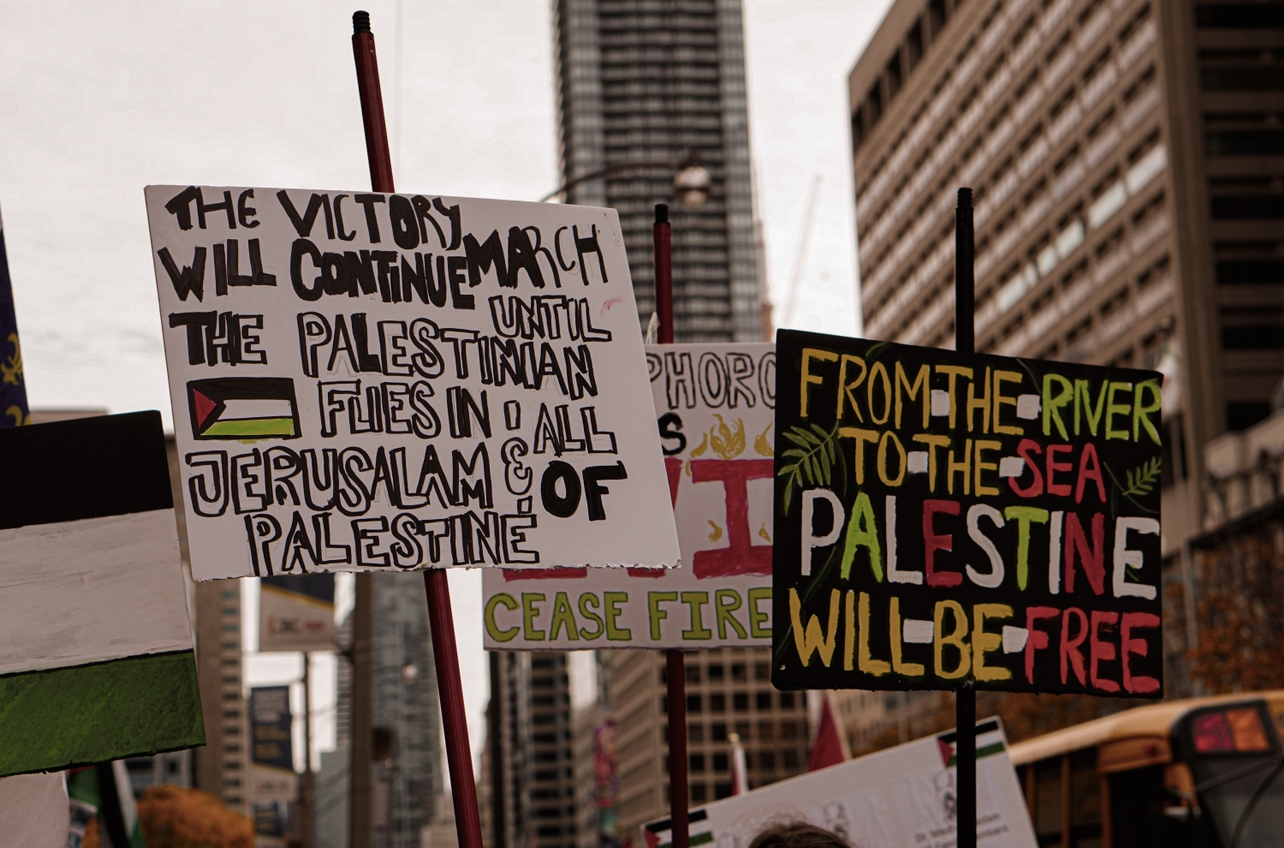 THE VICTORY
WILL CONTINUE MARCH
UNTIL
THE PALESTINIAN
FLIES IN ALL
JERUSALAM & OF
PALESTINE
PHORO
S
CEASE FIRE
FROM THE RIVER
TO THE SEA
PALESTINE
WILL BE FREE
Dr.